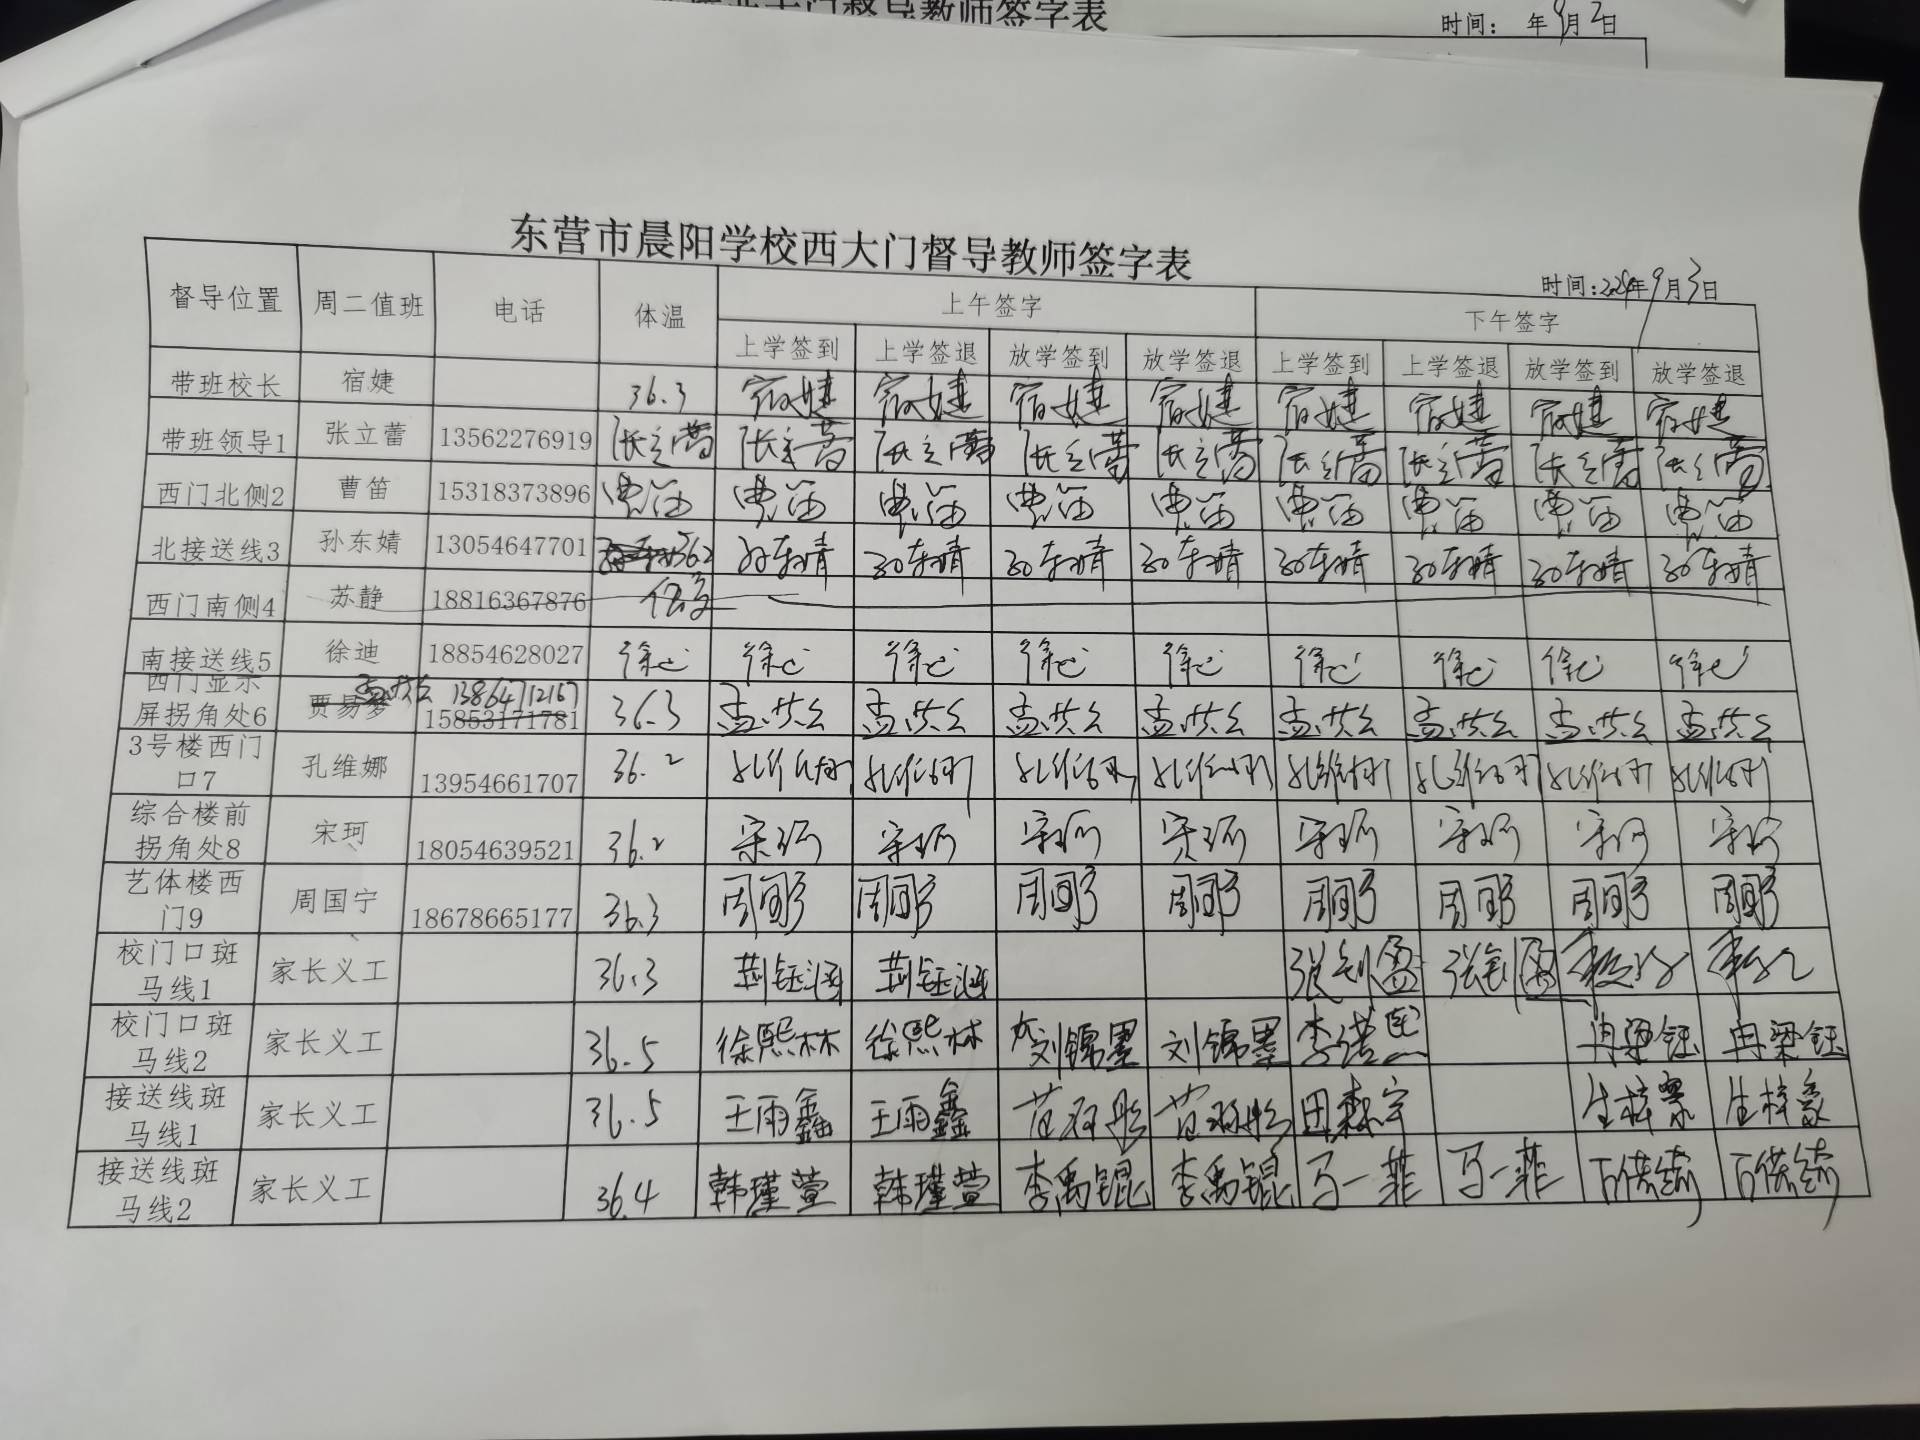 督导教师签字表
时间： 年9月2日
东营市晨阳学校西大门督导教师签字表
时间：2024年9月3日
督导位置 周二值班 电话 体温 上午签字 下午签字
上学签到 上学签退 放学签到 放学签退 上学签到 上学签退 放学签到 放学签退
带班校长 宿婕 36.3 宿婕 宿婕 宿婕 宿婕 宿婕 宿婕 宿婕 宿婕
带班领导1 张立蕾 13562276919 张立蕾 张立蕾 张立蕾 张立蕾 张立蕾 张立蕾 张立蕾 张立蕾 张立蕾
西门北侧2 曹笛 15318373896 曹笛 曹笛 曹笛 曹笛 曹笛 曹笛 曹笛 曹笛 曹笛
北接送线3 孙东婧 13054647701 36.2 孙东婧 孙东婧 孙东婧 孙东婧 孙东婧 孙东婧 孙东婧 孙东婧
西门南侧4 苏静 18816367876
南接送线5 徐迪 18854628027 徐迪 徐迪 徐迪 徐迪 徐迪 徐迪 徐迪 徐迪 徐迪
西门显示 13864712167
屏拐角处6 贾易梦 15853171781 36.3
3号楼西门
口7 孔维娜 13954661707 36.2 孔维娜 孔维娜 孔维娜 孔维娜 孔维娜 孔维娜 孔维娜 孔维娜
综合楼前
拐角处8 宋珂 18054639521 36.2 宋珂 宋珂 宋珂 宋珂 宋珂 宋珂 宋珂 宋珂
艺体楼西
门9 周国宁 18678665177 36.3 周国宁 周国宁 周国宁 周国宁 周国宁 周国宁 周国宁 周国宁
校门口斑
马线1 家长义工 36.3
校门口斑
马线2 家长义工 36.5 徐熙林 徐熙林 刘锦墨 刘锦墨 冉梁钰 冉梁钰
接送线斑
马线1 家长义工 36.5 王雨鑫 王雨鑫 田森宇
接送线斑
马线2 家长义工 36.4 韩瑾萱 韩瑾萱 李禹锟 李禹锟 马一菲 马一菲